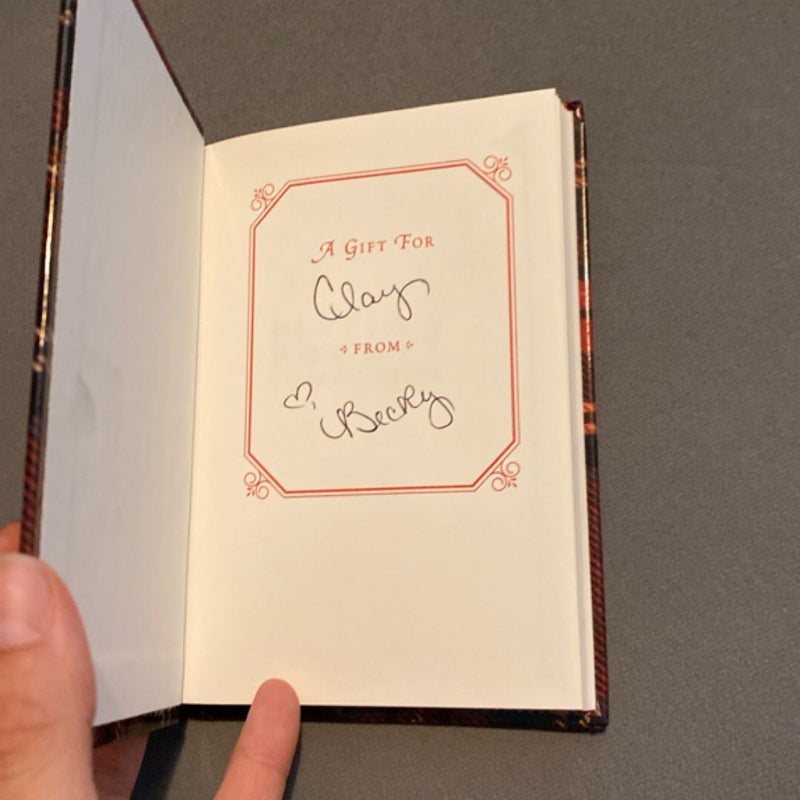 A Gift For
Clay
FROM
♡, Becky